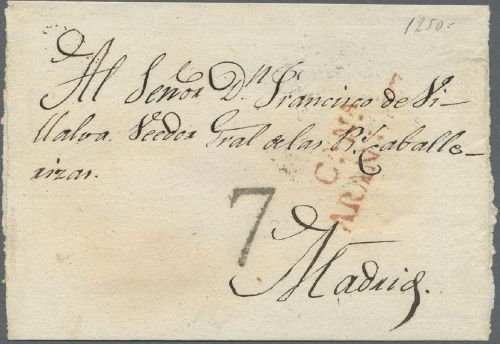 1250-
Al Señor Dn. Francisco de Vi-
llalva Veedor Gral de las Rs. Caballe-
rizas.
7
Madrid.